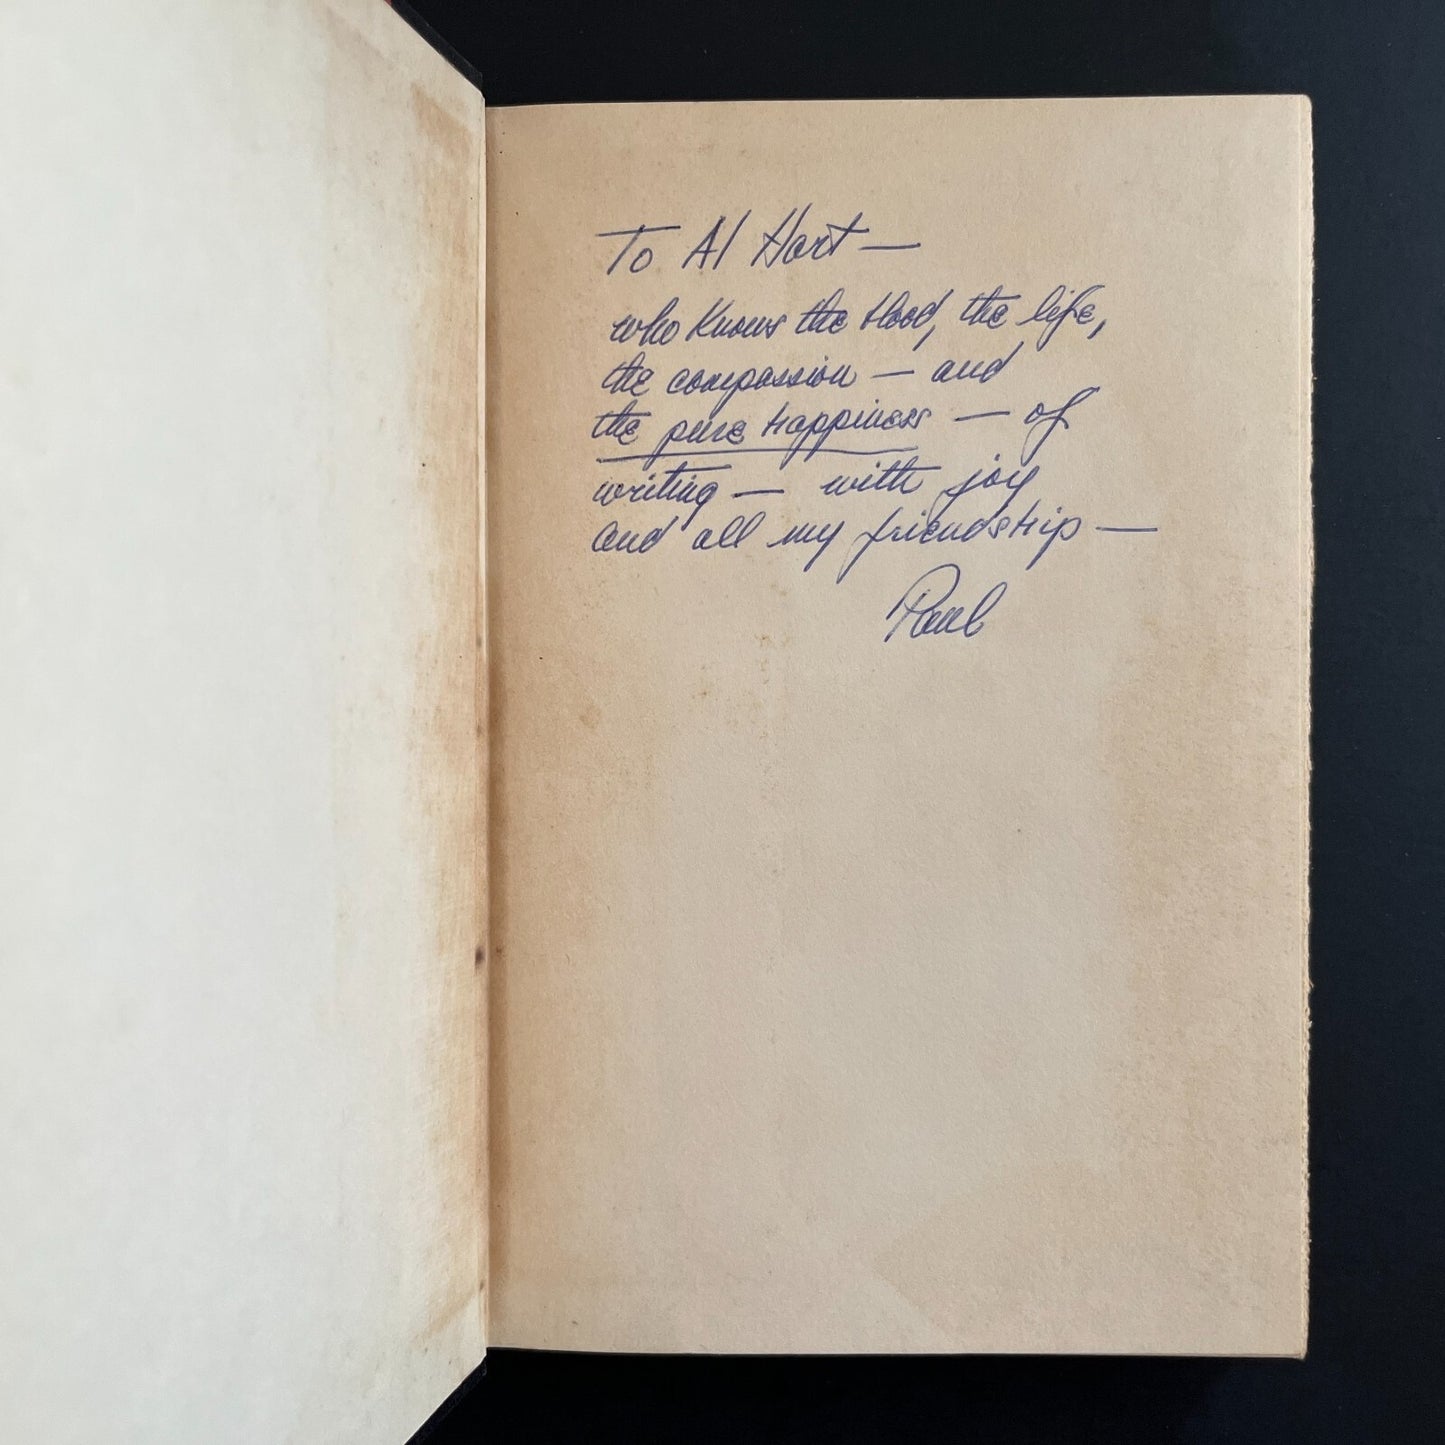 To Al Hart —
who knows the blood, the life,
the compassion — and
the pure happiness — of
writing — with joy
and all my friendship —
Paul